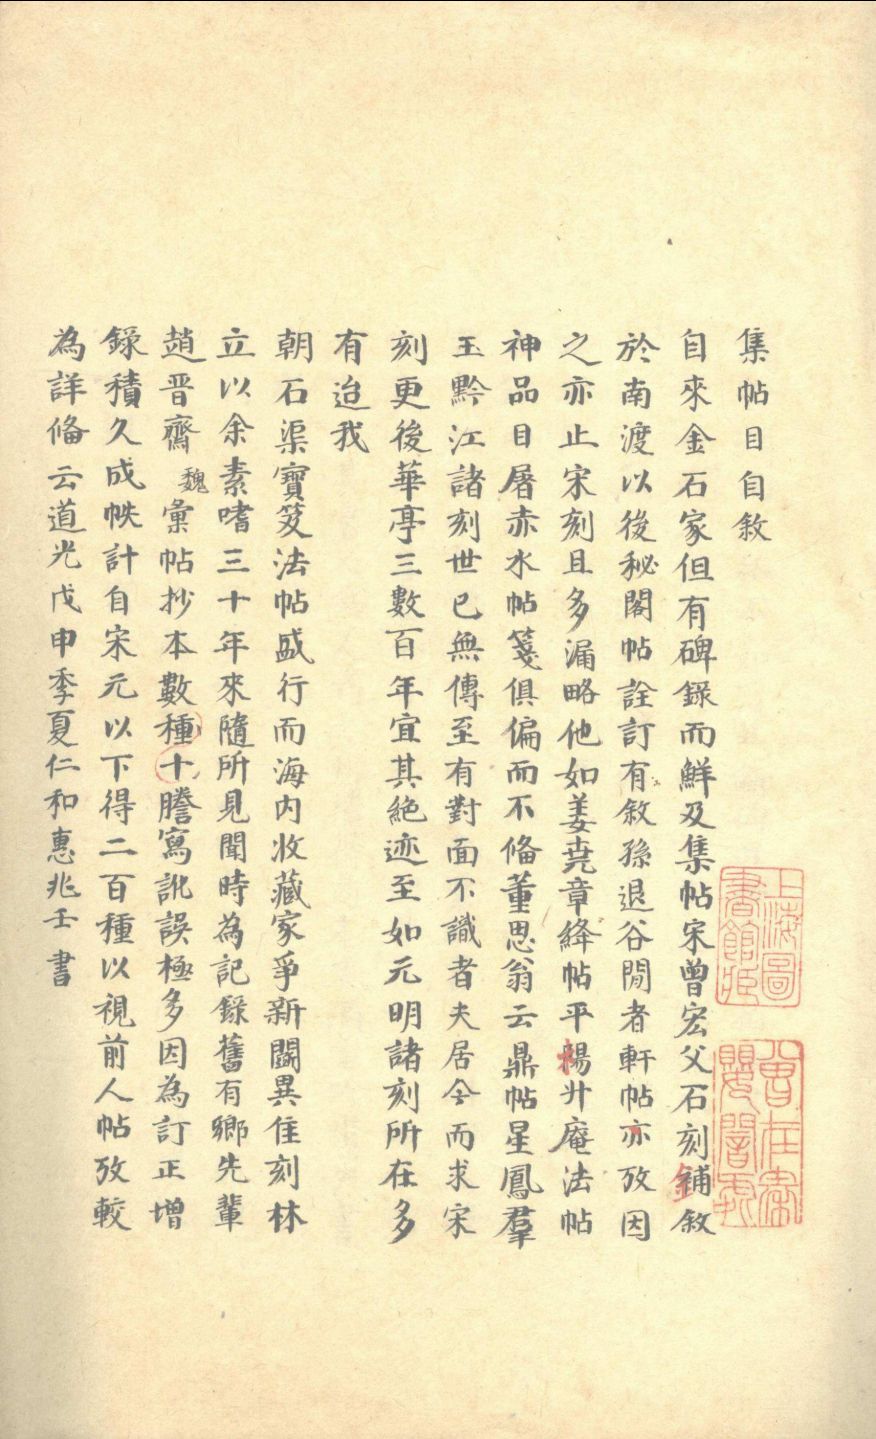 集帖目自敘
自來金石家但有碑錄而鮮及集帖宋曾宏父石刻補敘
於南渡以後秘閣帖詮訂有敘孫退谷閒者軒帖亦攷因
之亦止宋刻且多漏略他如姜堯章絳帖平楊升庵法帖
神品目屠赤水帖箋俱偏而不備董思翁云鼎帖星鳳羣
玉黔江諸刻世已無傳至有對面不識者夫居今而求宋
刻更後華亭三數百年宜其絕迹至如元明諸刻所在多
有迨我
朝石渠寶笈法帖盛行而海內收藏家爭新鬭異住刻林
立以余素嗜三十年來隨所見聞時為記錄舊有鄉先輩
趙晋齋魏彙帖抄本數種十謄寫訛誤極多因為訂正增
錄積久成帙計自宋元以下得二百種以視前人帖攷較
為詳備云道光戊申季夏仁和惠兆壬書
上海圖書館藏
曾在秦嬰闇處